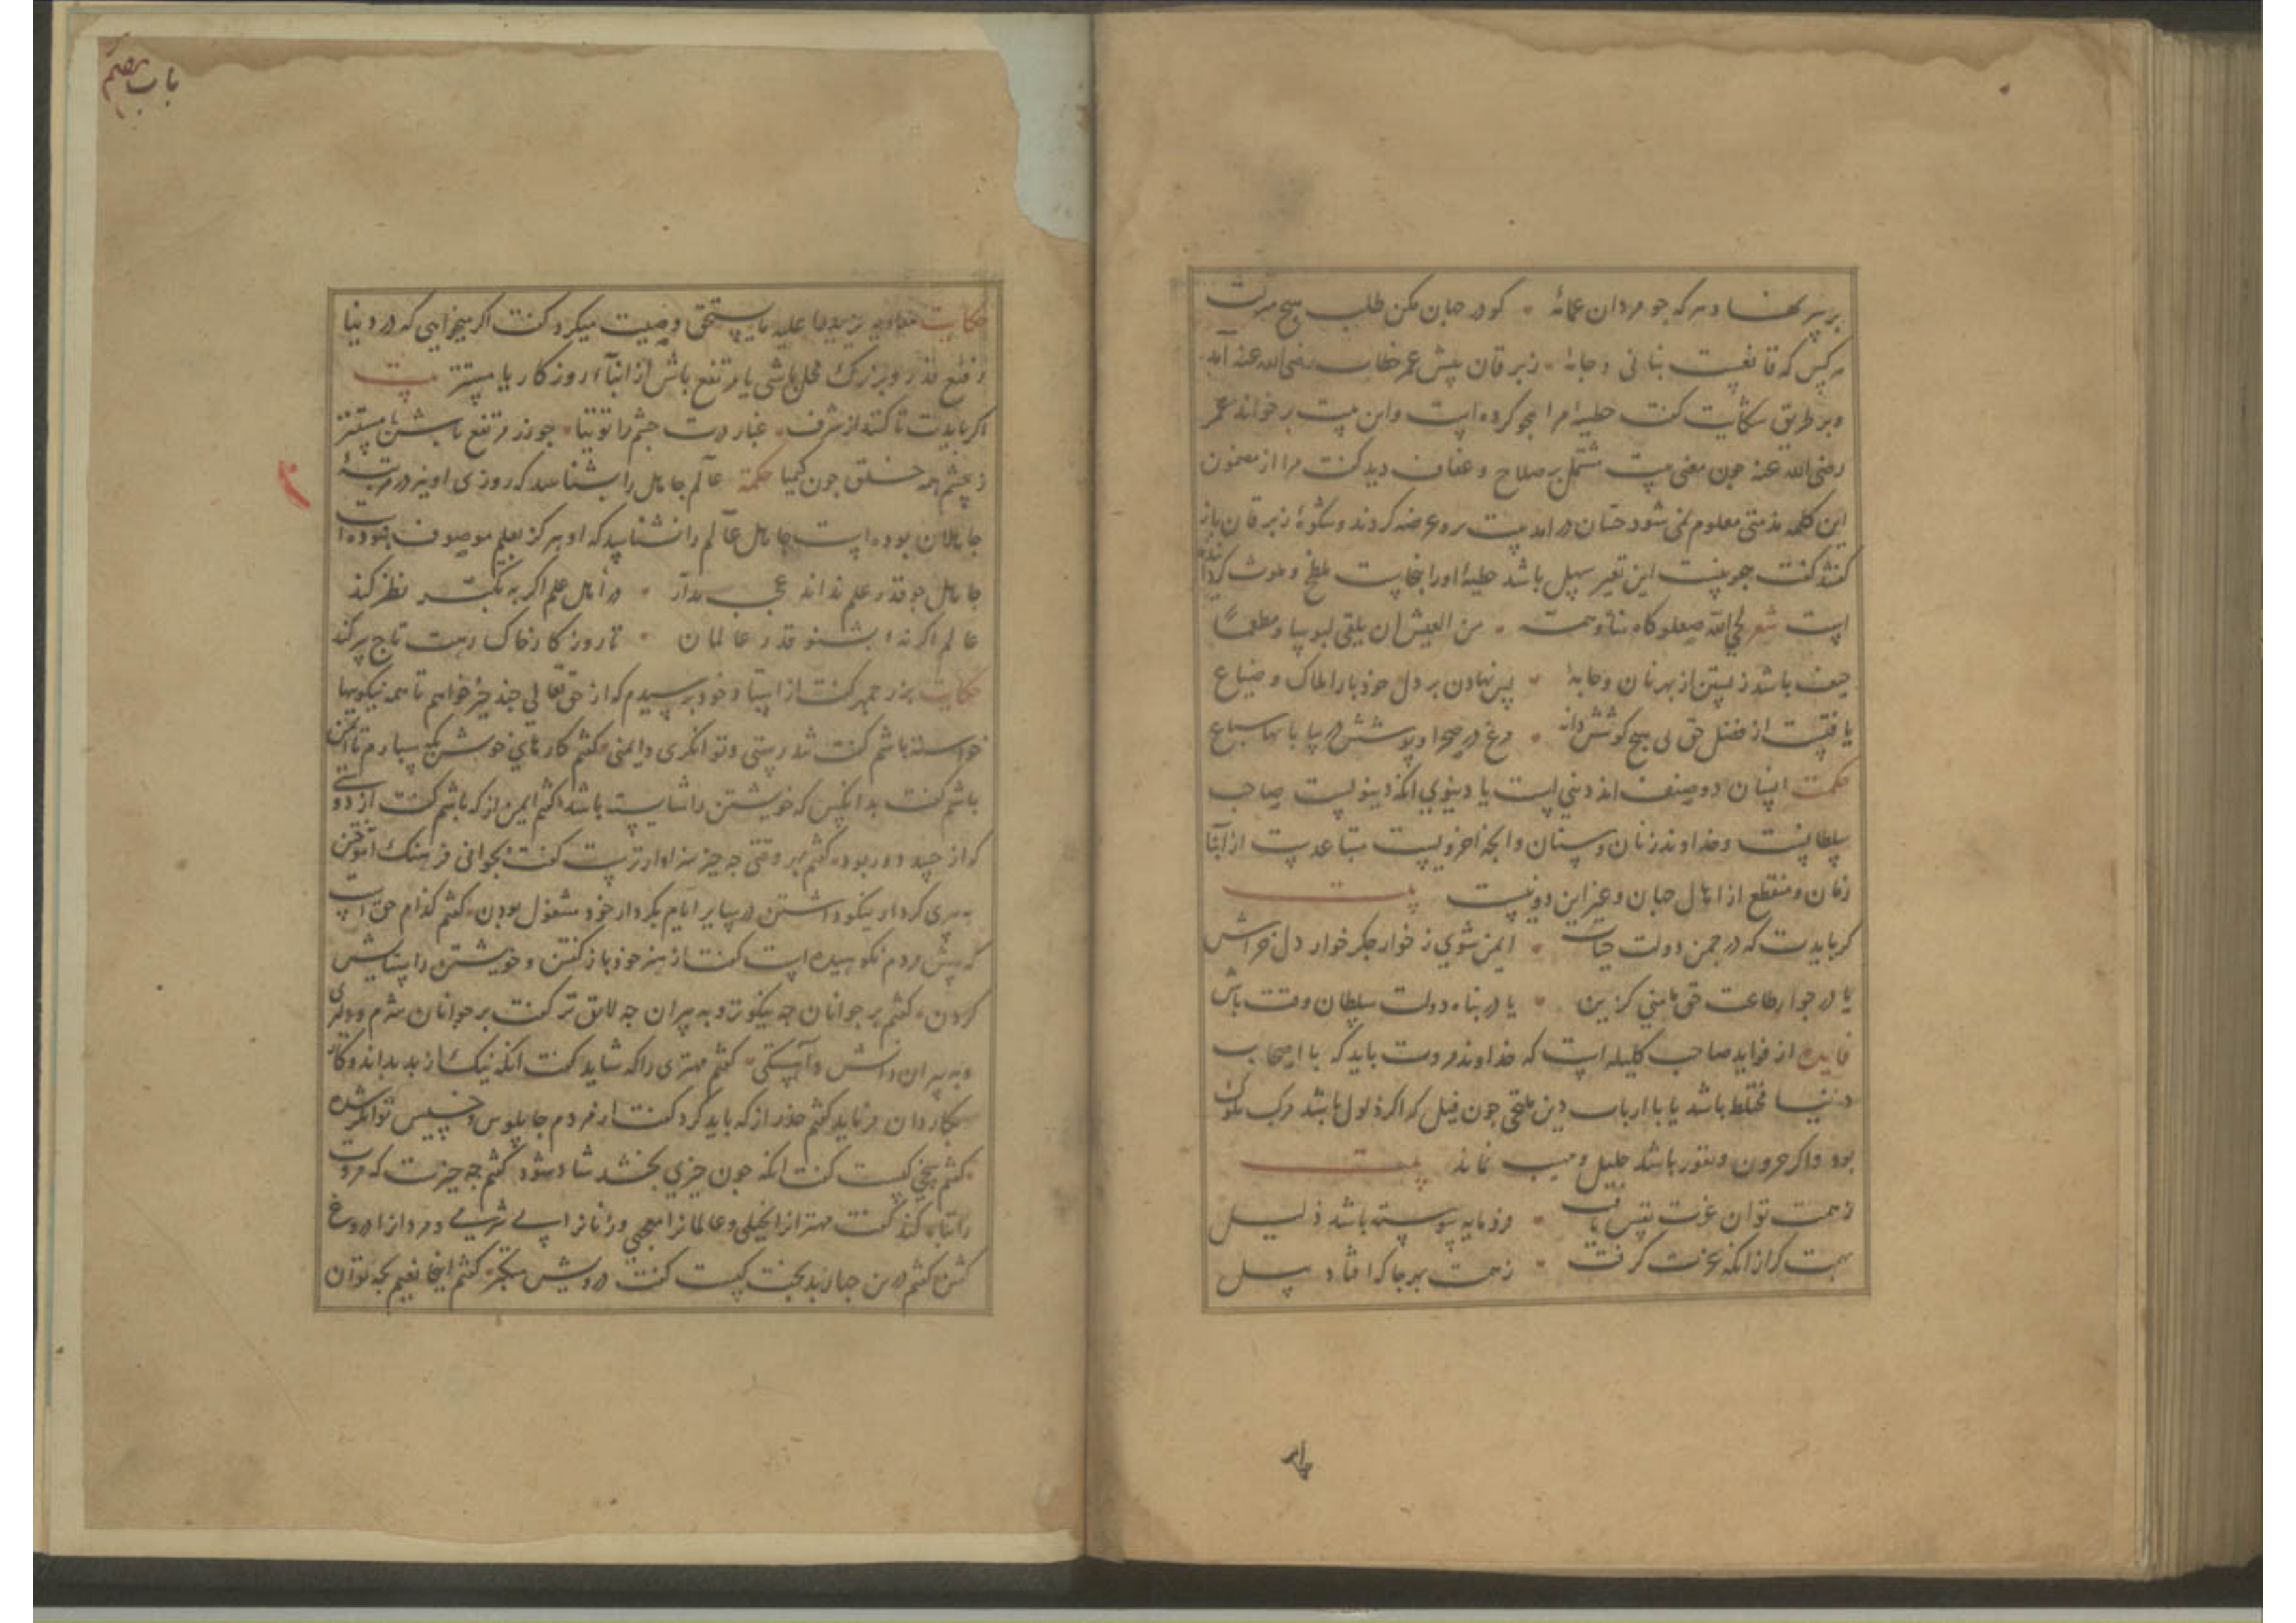 بر سر نهاد هر که چو مردان عمامهٔ • کو در جهان مکن طلب هیچ مرتبت
هر کس که قانعست بنانی و جامهٔ • زبرقان پیش عمر خطاب رضی الله عنه آمد
و بر طریق شکایت کفت حطیه مرا هجو کرده است و این بیت بر خواند عمر
رضی الله عنه چون معنی بیت مشتمل بر صلاح و عفاف دید کفت مرا از مضمون
این کلمه مذمتی معلوم نمی شود حسان در امد بیت برو عرضه کردند و شکوهٔ زبرقان باز
کفتند کفت هجو نیست این تغیر سهل باشد حطیه او را بنجاست ملطخ و ملوث کردانیده
است شعر لحی الله صعلوکا مناه و همه • من العیش ان یلقی لبوسا و مطعما
حیف باشد زیستن از بهر نان و جامهٔ • پس نهادن بر دل خود بار املاک و ضیاع
یافتست از فضل حق بی هیچ کوشش دانه • مرغ در صحرا و پوشش در بیابانها سباع
حکمت انسان دو صنف اند دینی است یا دنیوی انکه دنیویست صاحب
سلطانست و خداوند زنان و بستان و انچه اخرویست متباعدست از ابنا
زمان و منقطع از اهل جهان و غیر این دو نیست بیت
کر بایدت که در چمن دولت حیات • ایمن شوی ز خوار جکر خوار دل خراش
یا در جوار طاعت حق مامنی کزین • یا در پناه دولت سلطان وقت باش
فایده از فواید صاحب کلیله است که خداوند مروت باید که با اصحاب
دنیا مختلط باشد یا با ارباب دین ملتقی چون فیل که اکر ذلول باشد مرکب ملوک
بود و اکر حرون و نفور باشد جلیل و مهیب نماند بیت
ز همت توان عزت نفس یافت • فرومایه پیوسته باشد ذلیل
بهمت کراز انکه عزت کرفت • ز همت بهر جا که افتاد پیل
چهار
باب
حکایت معاویه یزید را علیه ما یستحق وصیت میکرد کفت اکر میخواهی که در دنیا
رفیع قدر و بزرک محل باشی یا مرتفع باش از ابناء روزکار یا مستتر بیت
اکر بایدت تا کنند از شرف • غبار درت چشم را توتیا • چو زر مرتفع باش تا مستتر
ز چشم همه خلق چون کیمیا حکمة عالم جاهل را بشناسد که روزی او نیز در مرتبهٔ
جاهلان بوده است جاهل عالم را نشناسد که او هرکز بعلم موصوف نبوده است
جاهل چو قدر علم نداند عجب مدار • در اهل علم اکر به تکبر نظر کند
عالم اکر ندا بشنو قدر عالمان • تا روزکار خاک رهت تاج سر کند
حکایت بزرجمهر کفت از استاد خود پرسیدم که از حق تعالی چه چیز خواهم تا همه نیکویها
خواسته باشم کفت تندرستی و توانکری و ایمنی • کفتم کارهای خویش بکه سپارم تا ایمن
باشم کفت بدانکس که خویشتن را شایسته باشد • کفتم ایمن از که باشم کفت از دوستی
که از حسد دور بود • کفتم بهر وقتی چه چیز سزاوارترست کفت بجوانی فرهنک آموختن
به پیری کردار نیکو داشتن در سایر ایام بکردار خود مشغول بودن • کفتم کدام حق است
که پیش مردم نکوهیده است کفت از هنر خود باز کفتن و خویشتن را ستایش
کردن • کفتم بر جوانان چه نیکوتر و به پیران چه لایق تر کفت بر جوانان شرم و دلیری
و به پیران دانش و آهستکی • کفتم مهتری را که شاید کفت انکه نیک از بد بداند و کار
بکاردان فرماید کفتم حذر از که باید کرد کفت از مردم چاپلوس و خسیس توانکر شده
• کفتم سخی کیست کفت انکه چون چیزی بخشد شاد شود کفتم چه چیزست که مروت
را تباه کند کفت مهترانرا بخیلی و عالمانرا عجبی و زنانرا بی شرمی و مردانرا دروغ
کفتن کفتم درین جهان بدبخت کیست کفت درویش متکبر • کفتم اینجا نعیم بچه توان